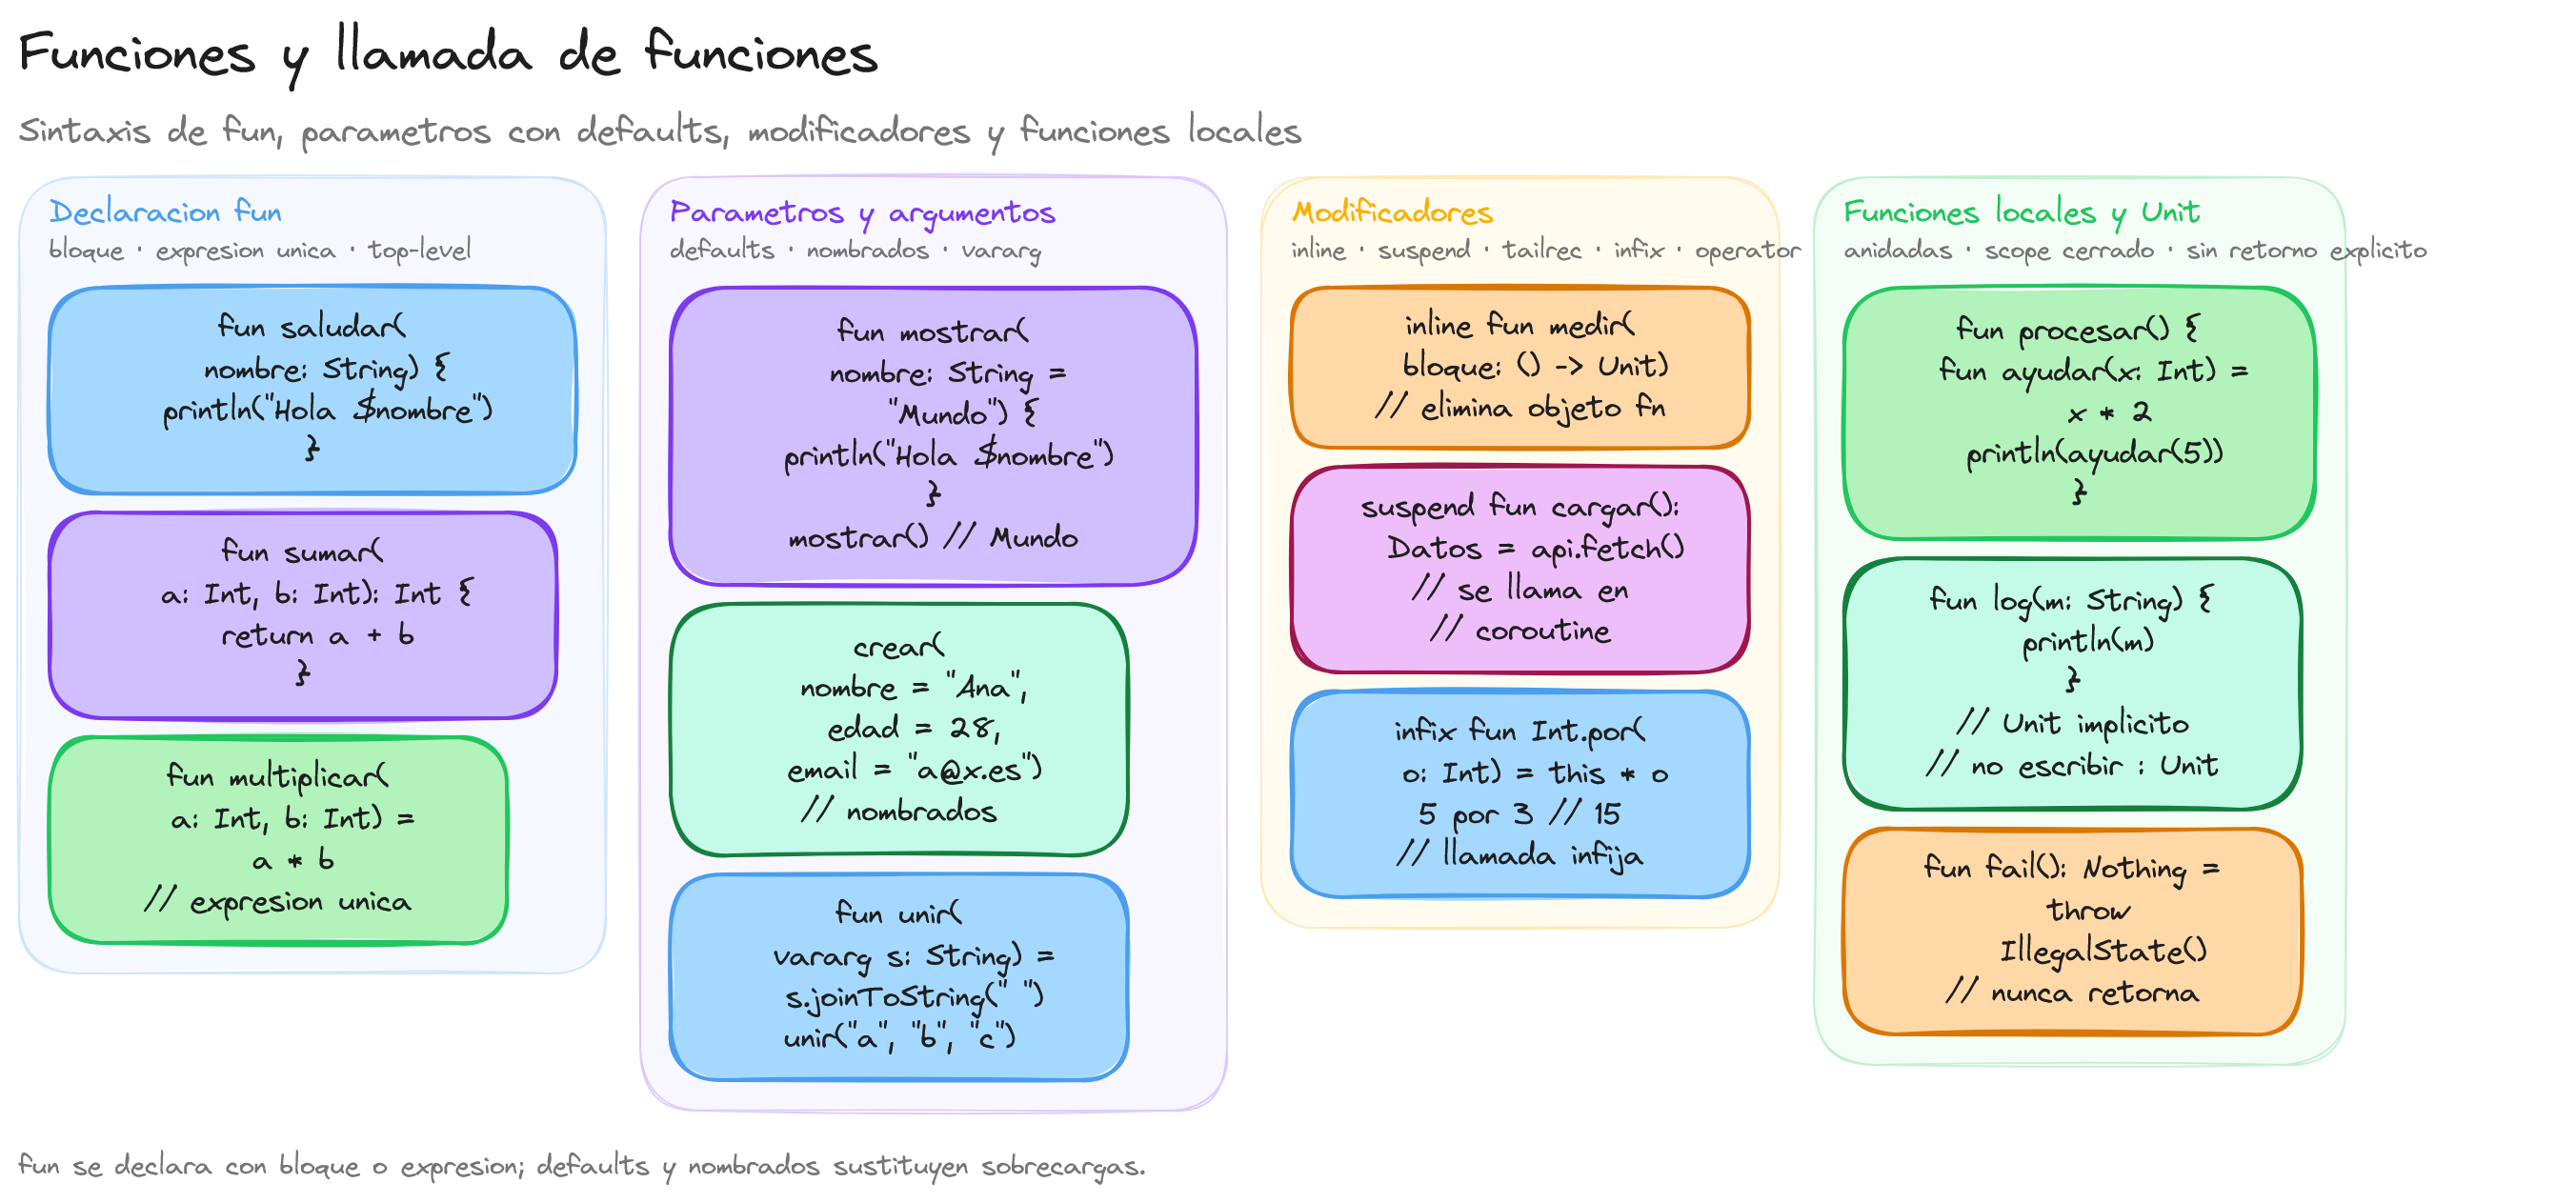 Funciones y llamada de funciones
Sintaxis de fun, parametros con defaults, modificadores y funciones locales
Declaracion fun
bloque · expresion unica · top-level
fun saludar(
nombre: String) {
println("Hola $nombre")
}
fun sumar(
a: Int, b: Int): Int {
return a + b
}
fun multiplicar(
a: Int, b: Int) =
a * b
// expresion unica
Parametros y argumentos
defaults · nombrados · vararg
fun mostrar(
nombre: String =
"Mundo") {
println("Hola $nombre")
}
mostrar() // Mundo
crear(
nombre = "Ana",
edad = 28,
email = "a@x.es")
// nombrados
fun unir(
vararg s: String) =
s.joinToString(" ")
unir("a", "b", "c")
Modificadores
inline · suspend · tailrec · infix · operator
inline fun medir(
bloque: () -> Unit)
// elimina objeto fn
suspend fun cargar():
Datos = api.fetch()
// se llama en
// coroutine
infix fun Int.por(
o: Int) = this * o
5 por 3 // 15
// llamada infija
Funciones locales y Unit
anidadas · scope cerrado · sin retorno explicito
fun procesar() {
fun ayudar(x: Int) =
x * 2
println(ayudar(5))
}
fun log(m: String) {
println(m)
}
// Unit implicito
// no escribir : Unit
fun fail(): Nothing =
throw
IllegalState()
// nunca retorna
fun se declara con bloque o expresion; defaults y nombrados sustituyen sobrecargas.